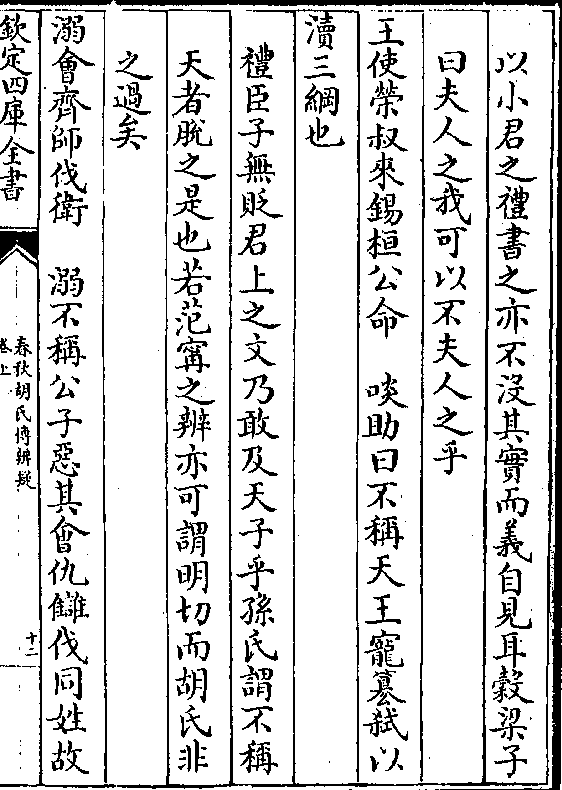 以小君之禮書之亦不沒其實而義自見耳穀梁子
曰夫人之我可以不夫人之乎
王使榮叔來錫桓公命　啖助曰不稱天王寵簒弑以
瀆三綱也
禮臣子無貶君上之文乃敢及天子乎孫氏謂不稱
天者脫之是也若范甯之辨亦可謂明切而胡氏非
之過矣
溺會齊師伐衛　溺不稱公子惡其會仇讎伐同姓故
欽定四庫全書
春秋胡氏傳辨疑
卷上
十二